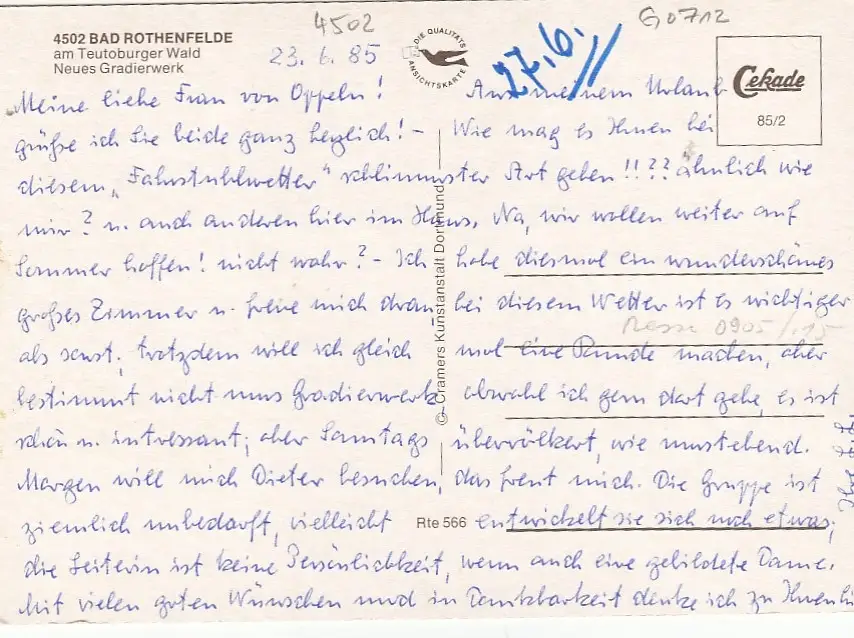 4502 G0712
4502 BAD ROTHENFELDE
am Teutoburger Wald
Neues Gradierwerk
23. 6. 85
DIE QUALITÄTS ANSICHTSKARTE
27.6.
Cekade
85/2
Meine liebe Frau von Oppeln! Aus meinem Urlaub
grüße ich Sie beide ganz herzlich! – Wie mag es Ihnen bei
diesem „Fahrstuhlwetter" schlimmster Art gehen!!?? ähnlich wie
mir? u. auch anderen hier im Haus. Na, wir wollen weiter auf
Sommer hoffen! nicht wahr? – Ich habe diesmal ein wunderschönes
großes Zimmer u. freue mich dran, bei diesem Wetter ist es wichtiger
0905
als sonst. Trotzdem will ich gleich mal eine Runde machen, aber
bestimmt nicht ums Gradierwerk obwohl ich gern dort gehe, es ist
schön u. intressant; aber Samstags übervölkert, wie umstehend.
Morgen will mich Dieter besuchen, das freut mich. Die Gruppe ist
ziemlich unbedarft, vielleicht entwickelt sie sich noch etwas,
die Leiterin ist keine Persönlichkeit, wenn auch eine gebildete Dame.
Mit vielen guten Wünschen und in Dankbarkeit denke ich zu Ihnen hi
© Cramers Kunstanstalt Dortmund
Rte 566